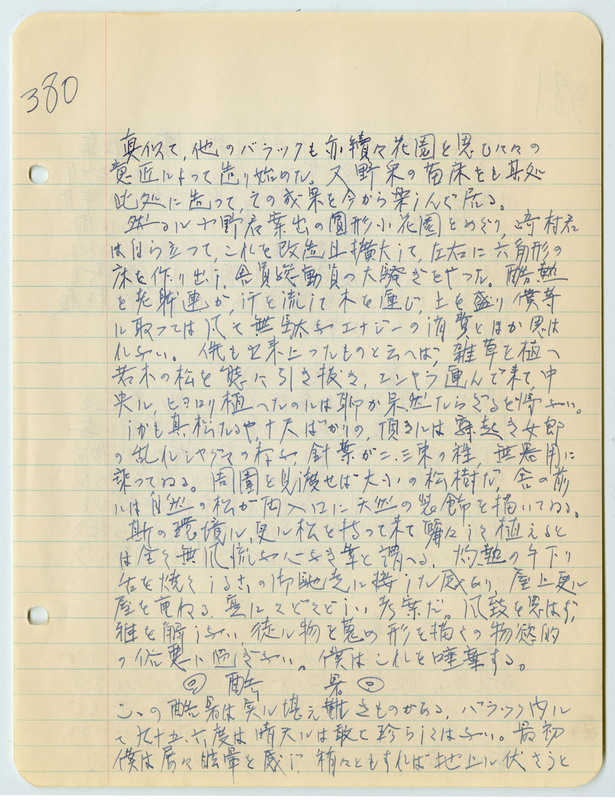 380
真似て、他のバラックも亦續々花園を思ひ々々の
意匠によって造り始めた。又野菜の苗床をも其処
此処に造って、その成果を今から楽しんで居る。
然るに 野君案出の圓形小花園をめぐり、崎村君
は自ら立って、これを改造し擴大して、左右に六角形の
床を作り出し、舎員総動員の大騒ぎをやった。酷熱
を 連が、汗を流して木を運び、土を盛り僕等
に取っては凡て無駄なエナジーの消費とほか思は
れない。 も出来上ったものと云へば、雑草を植へ
若木の松を 引き抜き、エンヤラ運んで来て、中
央に、ヒヨロリ植へたのには聊か呆然たらざるを得ない。
しかも真松たるや、十尺ばかりの、頂きには寝起き女郎
の乱れシャグマの如な、針葉が二、三束の程、無器用に
乗ってゐる。周圍を見渡せば大小の松樹だ、舎の前
には自然の松が両入口に天然の装飾を描いてゐる。
斯の環境に、更に松を持って来て麗々しく植えると
は全く無風流な 事と謂へる。 灼熱の午下り
舌を焼く しるこの御馳走に接した感あり、屋上更に
屋を重ねる、 にくどくどしい考案だ。風致を思はず、
雅を解しない、徒に物を蒐め形を描くの物慾的
の俗悪に過ぎない。僕はこれを唾棄する。
◎ 酷 暑 ◎
こゝの酷暑は実に堪え難きものがある。バラック内に
て九十五、六度は晴天には敢て珍らしくはない。最初
僕は屡々眩暈を感じ、稍々ともすれば地上に伏さうと